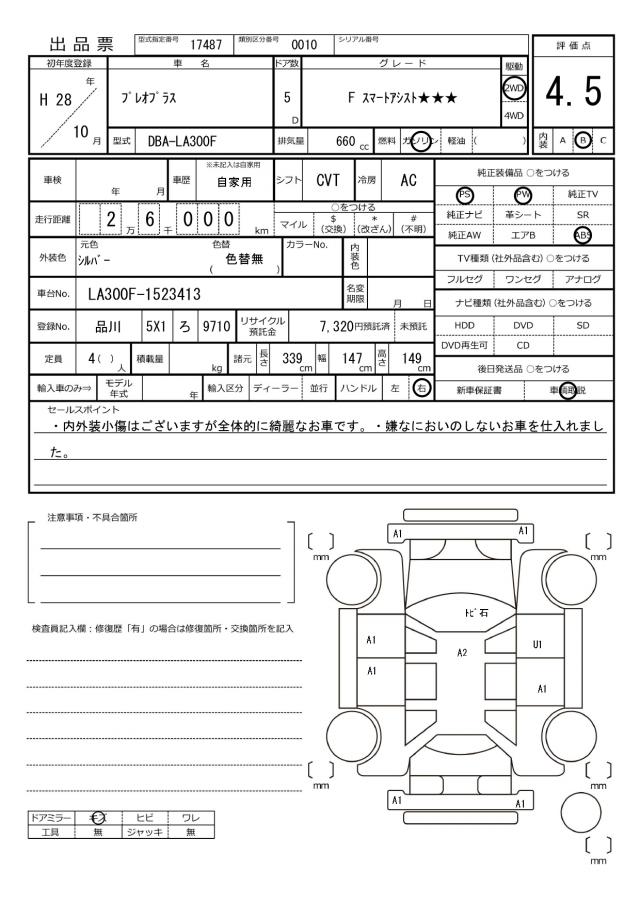 出品票
型式指定番号 17487 類別区分番号 0010 シリアル番号
評価点
4.5
内装 A B C
初年度登録 車名 ドア数 グレード 駆動
H 28 年 10 月
プレオプラス
5 D
F スマートアシスト★★★
2WD
4WD
型式 DBA-LA300F 排気量 660 cc 燃料 ガソリン 軽油 ( )
車検 年 月 車歴 ※未記入は自家用 自家用 シフト CVT 冷房 AC
走行距離 2 万 6 千 0 0 0 km
○をつける
マイル $ (交換) * (改ざん) # (不明)
外装色 元色 シルバー 色替 ( 色替無 ) カラーNo. 内装色
車台No. LA300F-1523413 名変期限 月 日
登録No. 品川 5X1 ろ 9710 リサイクル預託金 7,320円預託済 未預託
定員 4( ) 人 積載量 kg 諸元 長さ 339 cm 幅 147 cm 高さ 149 cm
輸入車のみ⇒ モデル年式 年 輸入区分 ディーラー 並行 ハンドル 左 右
純正装備品 ○をつける
PS PW 純正TV
純正ナビ 革シート SR
純正AW エアB ABS
TV種類 (社外品含む) ○をつける
フルセグ ワンセグ アナログ
ナビ種類 (社外品含む) ○をつける
HDD DVD SD
DVD再生可 CD
後日発送品 ○をつける
新車保証書 車輌取説
セールスポイント
・内外装小傷はございますが全体的に綺麗なお車です。・嫌なにおいのしないお車を仕入れまし
た。
注意事項・不具合箇所
検査員記入欄：修復歴「有」の場合は修復箇所・交換箇所を記入
ドアミラー キズ ヒビ ワレ
工具 無 ジャッキ 無
A1 A1
[ ] mm [ ] mm
トビ石
A1 A2 U1
A1 A1
[ ] mm [ ] mm
A1 A1
[ ] mm